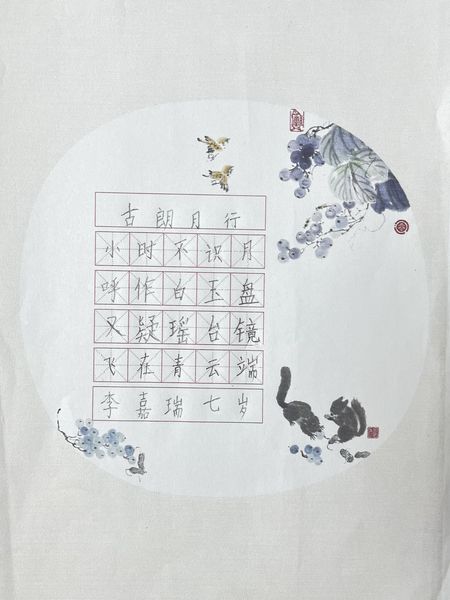 古朗月行
小时不识月
呼作白玉盘
又疑瑶台镜
飞在青云端
李嘉瑞七岁